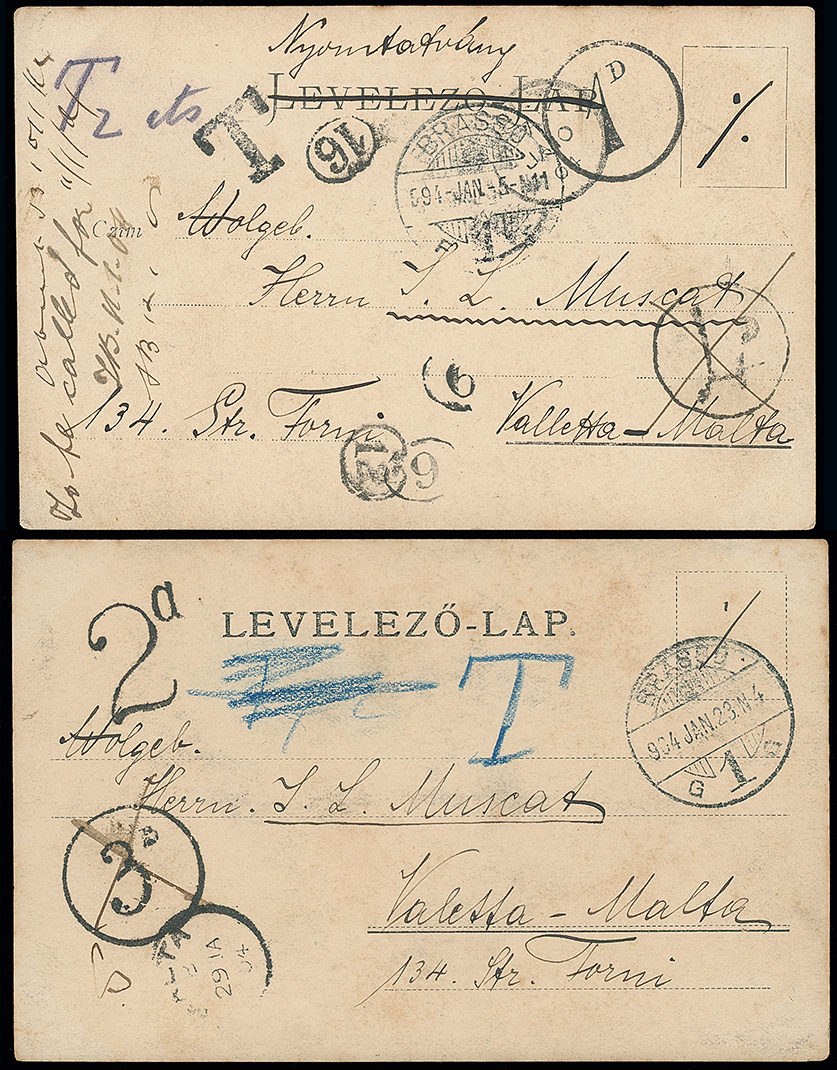 Nyomtatvány
LEVELEZŐ-LAP
T
2 cts
T
16
1D
BRASSÓ
904-JAN.-5-N11
1
Wolgeb.
Czim
Herrn S. L. Muscat
134. Str. Forni
Valletta-Malta
To be called for
9
12
9
2d
LEVELEZŐ-LAP.
T
BRASSÓ
904 JAN.23.N.4
G 1
Wolgeb.
Herrn. S. L. Muscat
3
Valetta-Malta
134. Str. Forni
MALTA
29 JA
04